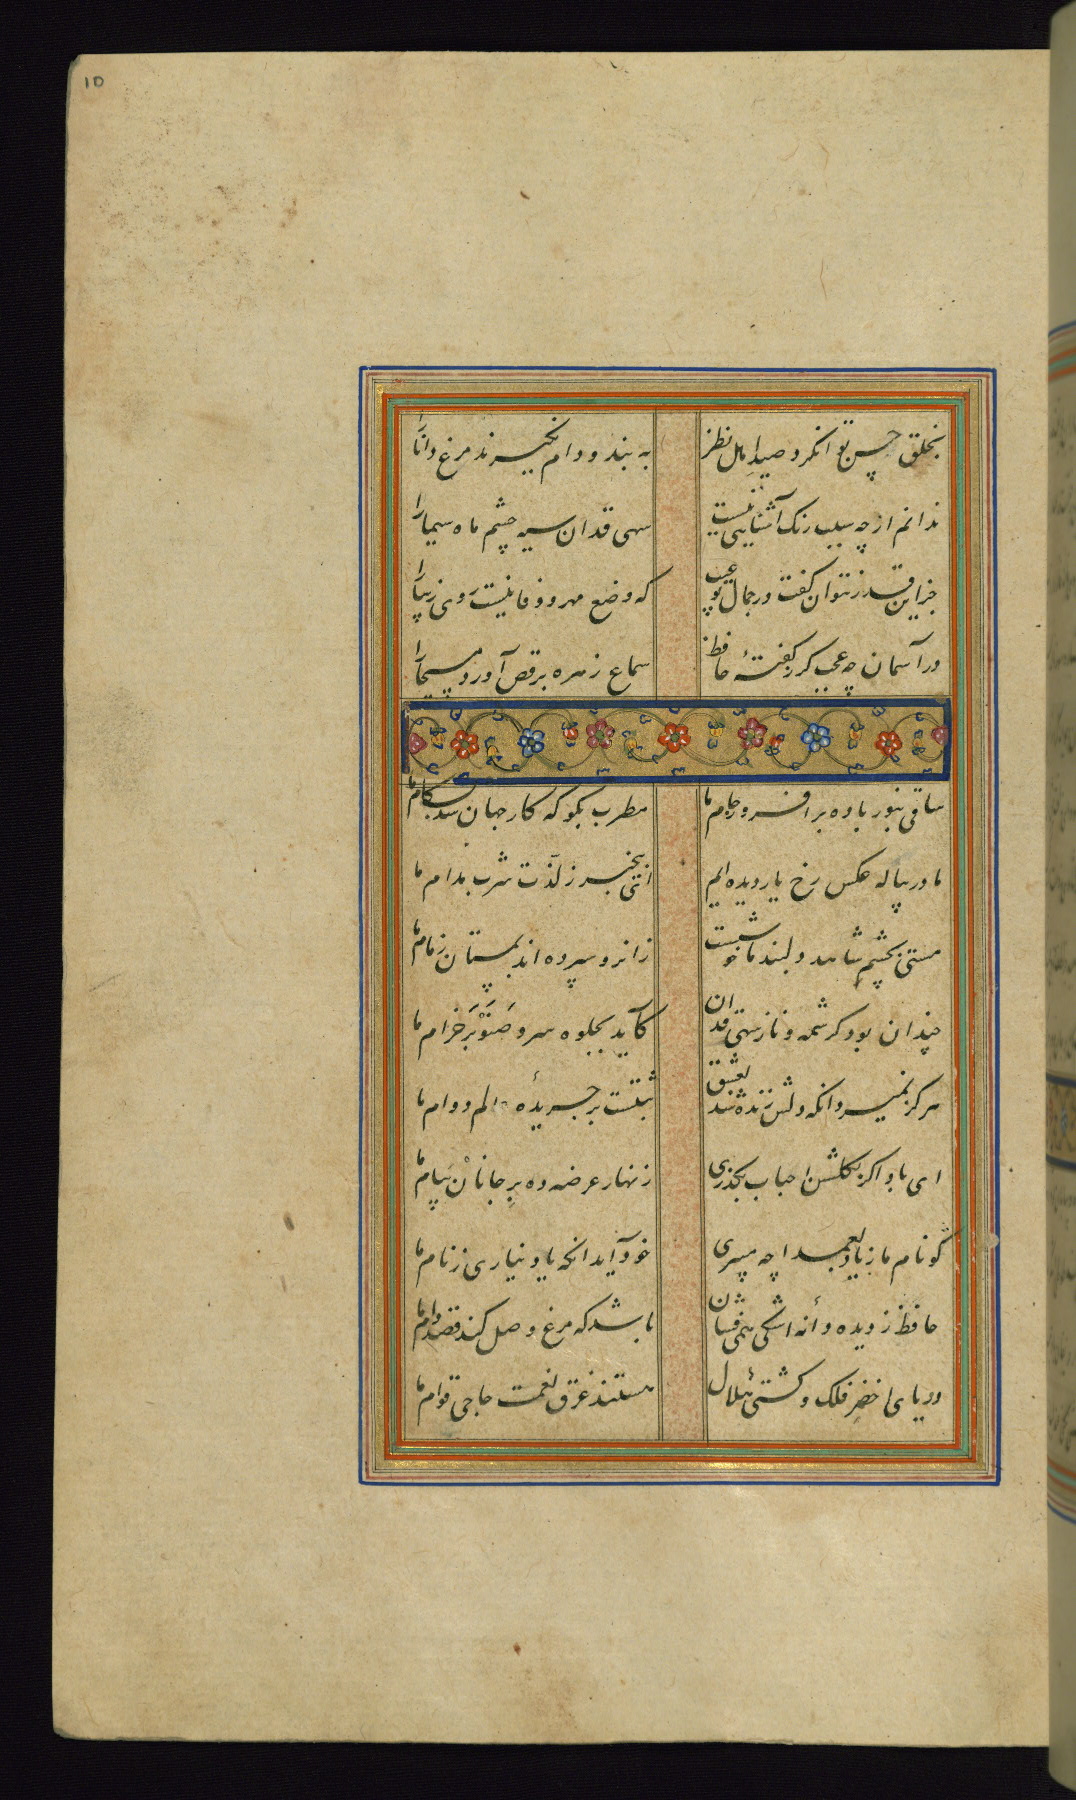 10
بخلق و حسن توان کرد صید اهل نظر
به بند و دام نگیرند مرغ دانا را
ندانم از چه سبب رنگ آشنایی نیست
سهی قدان سیه چشم ماه سیما را
جز این قدر نتوان گفت در جمال تو عیب
که وضع مهر و وفا نیست روی زیبا را
در آسمان چه عجب گر ز گفتهٔ حافظ
سماع زهره برقص آورد مسیحا را
ساقی بنور باده برافروز جام ما
مطرب بگو که کار جهان شد بکام ما
ما در پیاله عکس رخ یار دیده‌ایم
ای بیخبر ز لذّت شرب مدام ما
مستی بچشم شاهد دلبند ما خوشست
زانرو سپرده‌اند بمستان زمام ما
چندان بود کرشمه و ناز سهی قدان
کآید بجلوه سرو صَنَوْبَر خرام ما
هرگز نمیرد آنکه دلش زنده شد بعشق
ثبتست بر جریدهٔ عالم دوام ما
ای باد اگر بگلشن احباب بگذری
زنهار عرضه ده برِ جانانْ پیام ما
گو نام ما ز یاد بعمدا چه میبری
خود آید آنکه یاد نیاری ز نام ما
حافظ ز دیده دانهٔ اشکی همی فشان
باشد که مرغ وصل کند قصد دام ما
دریای اخضرِ فلک و کشتی هلال
هستند غرق نعمت حاجی قوام ما